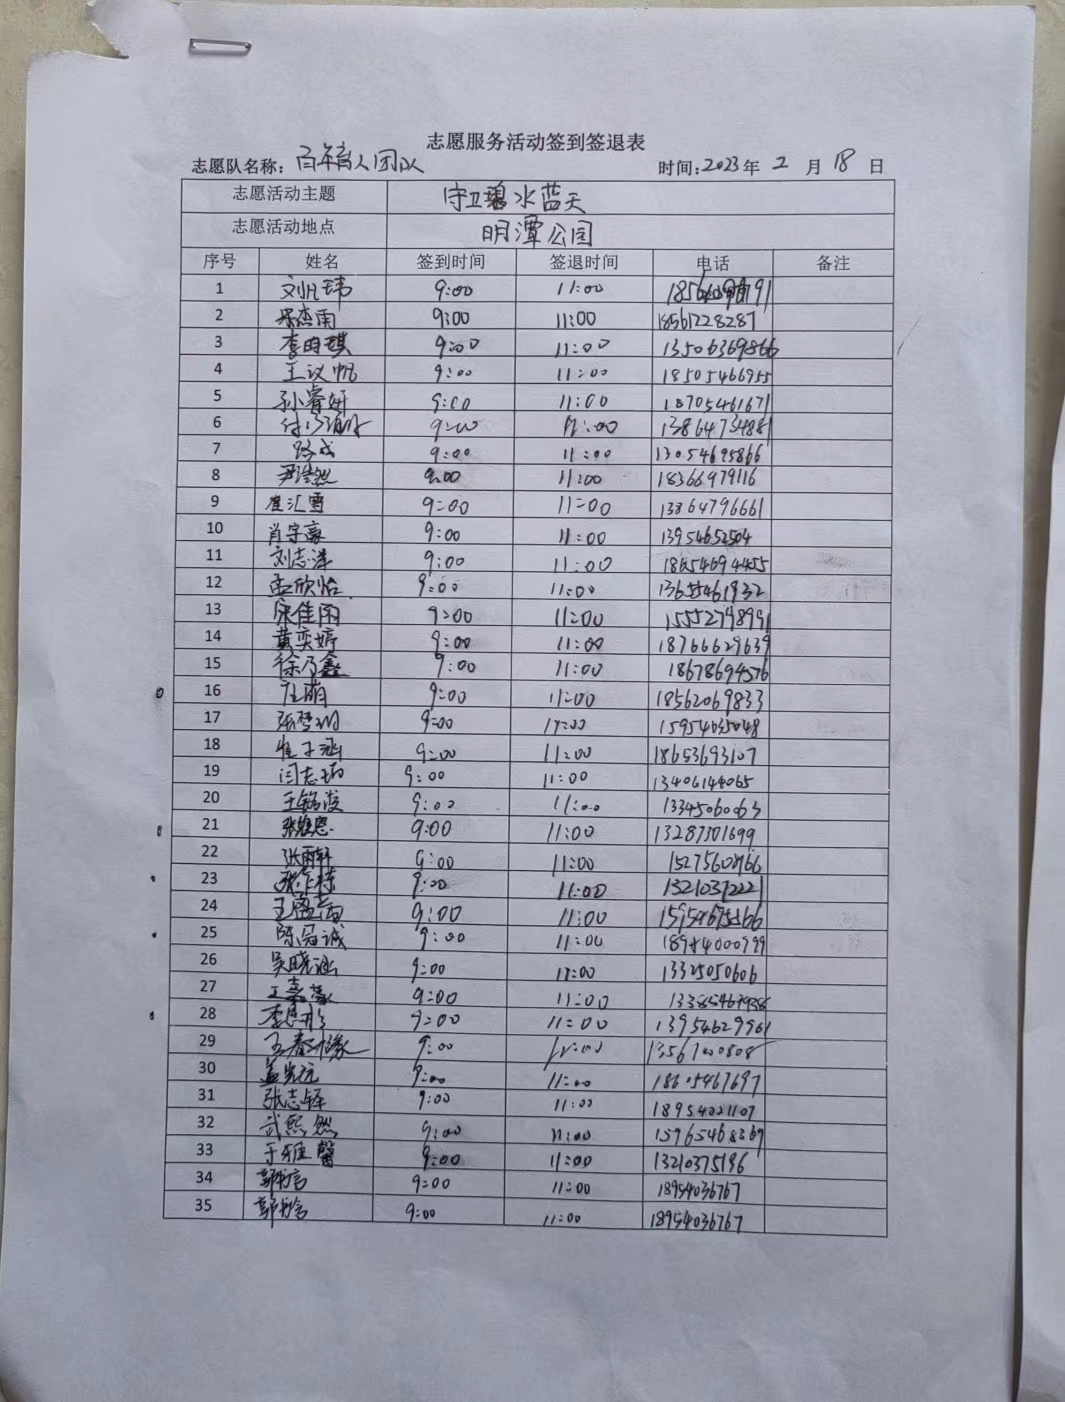 志愿服务活动签到签退表
志愿队名称: 百年育人团队 时间:2023年 2 月 18 日
志愿活动主题 守卫碧水蓝天
志愿活动地点 明潭公园
序号 姓名 签到时间 签退时间 电话 备注
1 刘凡玮 9:00 11:00
2 9:00 11:00 18561228287
3 李明琪 9:00 11:00 13506369866
4 王议帆 9:00 11:00 18505466955
5 孙睿妍 9:00 11:00 18705461671
6 9:00 11:00 13864734881
7 路成 9:00 11:00 13054695866
8 尹浩然 9:00 11:00 18366979116
9 崔汇雪 9:00 11:00 13864796661
10 肖宇豪 9:00 11:00 13954652504
11 刘志泽 9:00 11:00 18654694455
12 孟欣怡 9:00 11:00
13 宋佳雨 9:00 11:00 15552798991
14 黄奕婷 9:00 11:00 18766629639
15 徐乃鑫 9:00 11:00 18678694576
16 9:00 11:00 18562069833
17 张梦珂 9:00 11:00 15954035048
18 崔子涵 9:00 11:00 18653693107
19 闫志 9:00 11:00 13406144065
20 9:00 11:00 1334506063
21 张继恩 9:00 11:00 13287301699
22 张雨轩 9:00 11:00
23 张作栋 9:00 11:00 1321037222
24 9:00 11:00
25 陈冠诚 9:00 11:00
26 吴晓涵 9:00 11:00 13325050606
27 王嘉豪 9:00 11:00
28 李思彤 9:00 11:00 13954629961
29 9:00 11:00
30 9:00 11:00 18605467697
31 张志铎 9:00 11:00 18954021107
32 武熙然 9:00 11:00 15965468369
33 于雅馨 9:00 11:00 13210375196
34 9:00 11:00 18954036767
35 9:00 11:00 18954036767